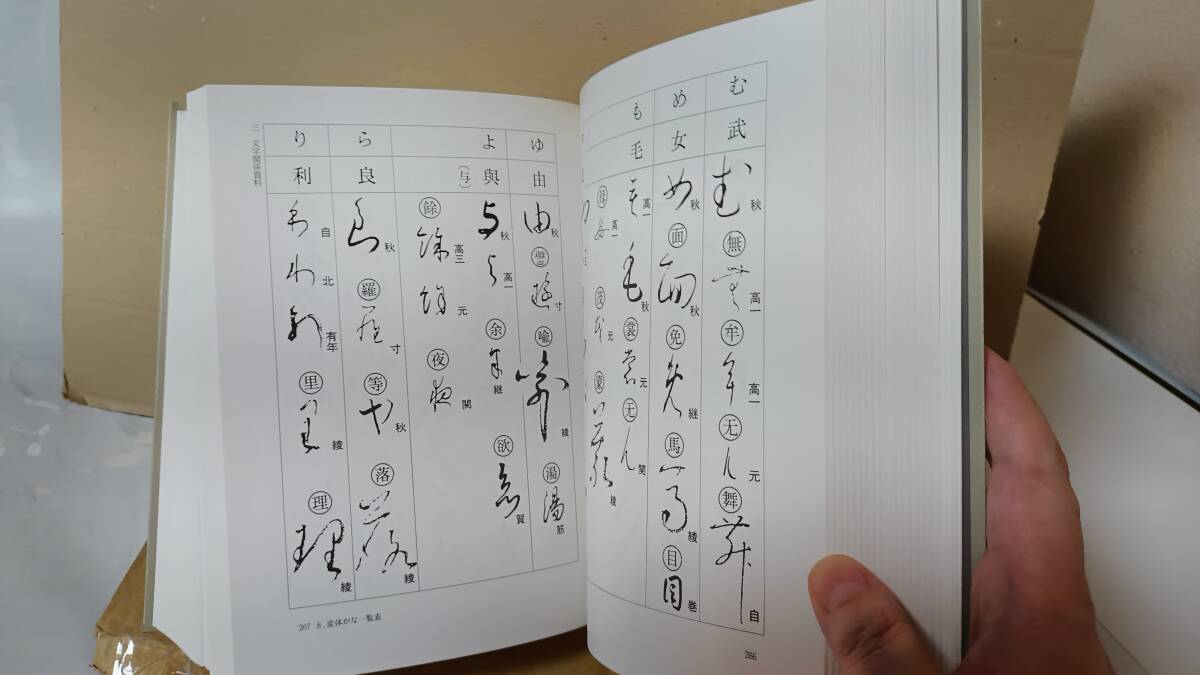 む
武
秋
無
高一
牟
高一
无
元
舞
自
め
女
秋
面
秋
免
継
馬
綾
目
巻
も
毛
高一
秋
裳
元
无
関
母
高一
茂
元
蒙
綾
266
ゆ
由
秋
遊
寸
喩
綾
湯
筋
よ
與
(与)
秋
高一
余
継
欲
賀
餘
高三
元
夜
関
ら
良
秋
羅
寸
等
秋
落
綾
り
利
自
北
有年
里
綾
理
綾
三 文字関係資料
267 8. 変体がな一覧表